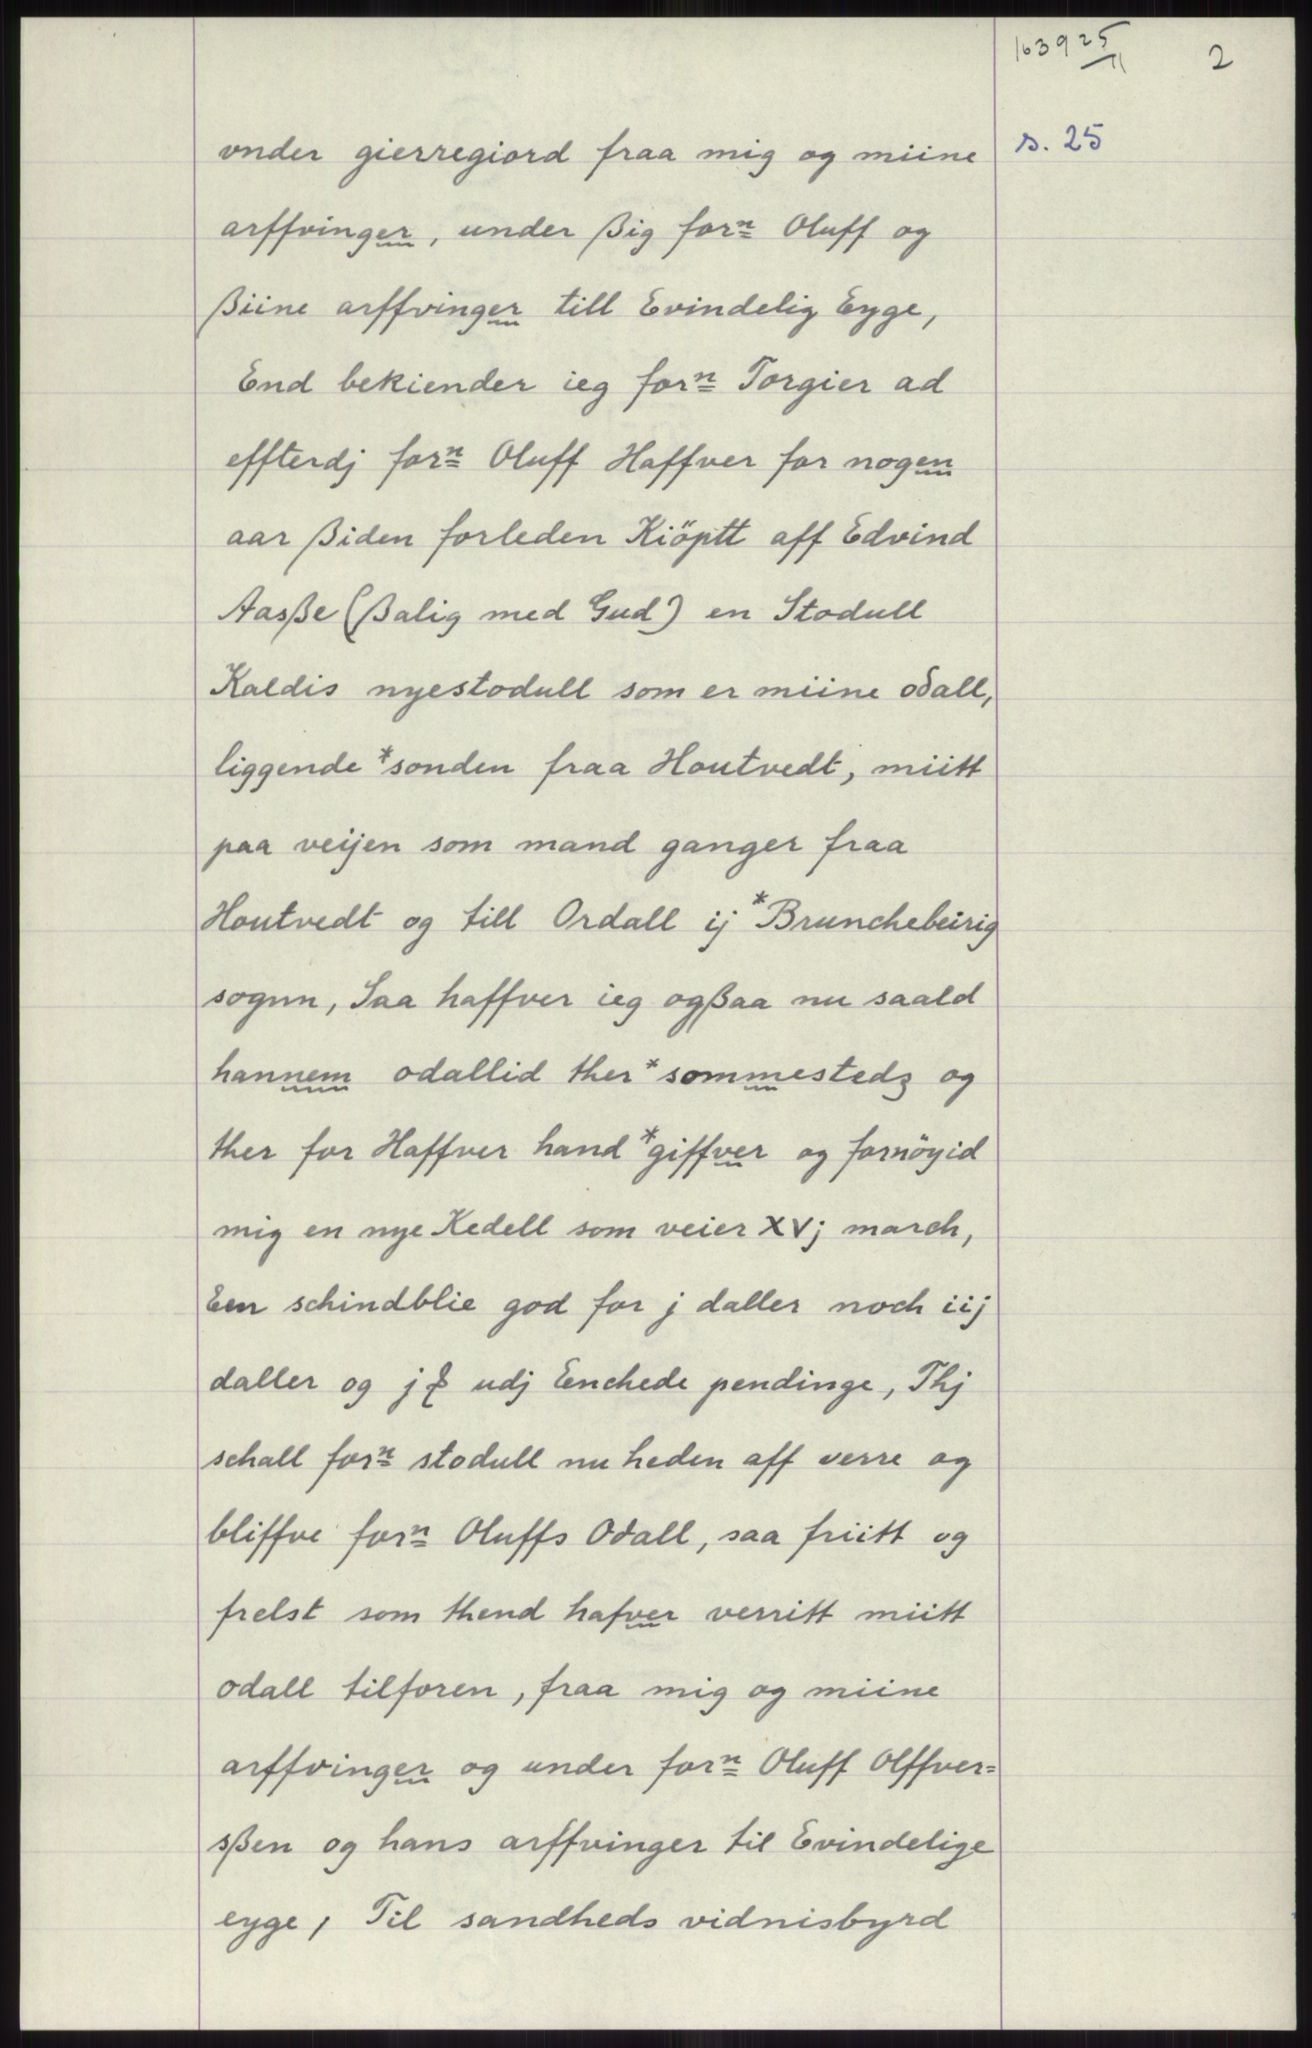 1639 25/11
2
s. 25
vnder gierregiord fraa mig og miine
arffvinger, under ßig forn Oluff og
ßiine arffvinger till Evindelig Eyge,
End bekiender ieg forn Torgier ad
effterdj forn Oluff Haffver for nogen
aar ßiden forleden Kiöptt aff Edvind
Aasße (ßalig med Gud) en Stodull
Kaldis nyestodull som er miine odall,
liggende *sonden fraa Houtvedt, miitt
paa veijen som mand ganger fraa
Houtvedt og till Ordall ij *Brunchebeirig
sognn, Saa haffver ieg ogßaa nu saald
hannem odallid ther *sommestedz og
ther for Haffver hand *giffver og fornöyid
mig en nye Kedell som veier XVj march,
Een schindblie god for j daller noch iij
daller og j udj Enchede pendinge, Thj
schall forn stodull nu heden aff verre og
bliffve forn Oluffs Odall, saa friitt og
frelst som thend hafver verritt miitt
odall tilforen, fraa mig og miine
arffvinger og under forn Oluff Olffver=
sßen og hans arffvinger til Evindelige
eyge, Til sandheds vidnisbyrd